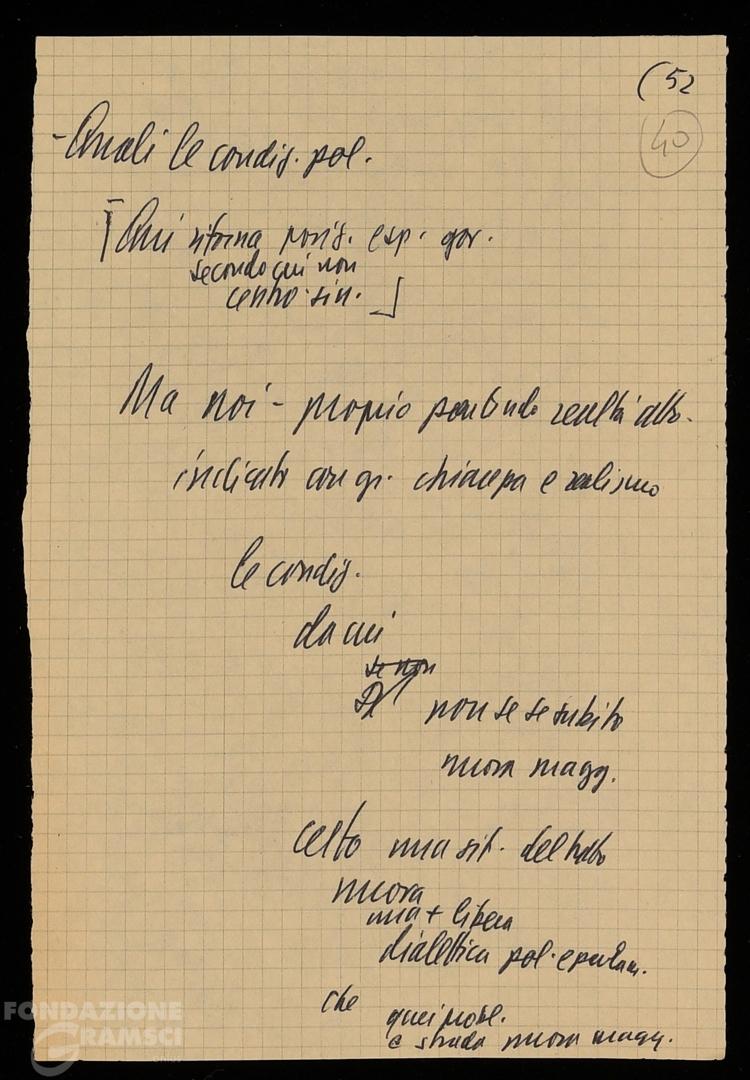 (52
40
- Quali le condiz. pol.
[Qui ritorna posiz. esp. gov.
secondo cui non
centro-sin.]
Ma noi - proprio partendo realtà
indicato con gr. chiarezza e realismo
le condiz.
da cui
se non
non se se subito
nuova magg.
certo una sit. del tutto
nuova
una + libera
dialettica pol. e parlam.
che
quei probl.
e strada nuova magg.
FONDAZIONE
GRAMSCI